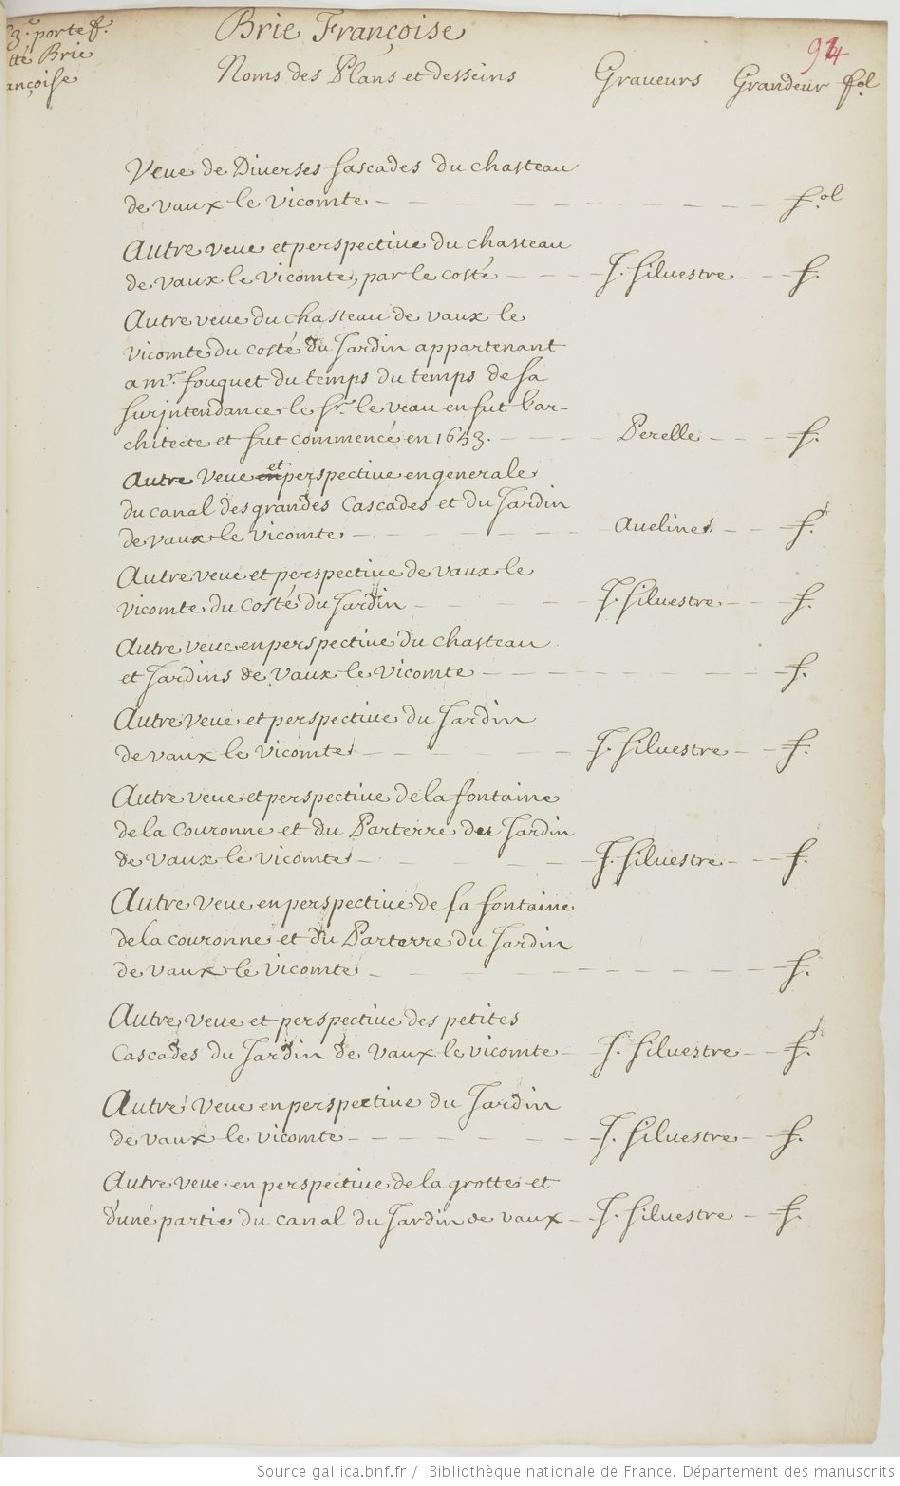 3.e porte f.
tté Brie
ançoise
Brie Françoise
94
Noms des Plans et desseins Graueurs Grandeur fol
Veue de Diuerses Cascades du chasteau
de vaux le vicomte - fol
Autre veue et perspectiue du chasteau
de vaux le vicomte, par le costé - J. Siluestre - f.
Autre veue du chasteau de vaux le
vicomte du costé du Jardin appartenant
a mr. fouquet du temps du temps de sa
surjntendance le Sr. le veau en fut l'ar-
chitecte et fut commencé en 1653. - Perelle - f.
Autre veue et perspectiue en generale
du canal des grandes Cascades et du Jardin
de vaux le vicomte - Aueline - f.
Autre veue et perspectiue de vaux le
vicomte du costé du Jardin - J. Siluestre - f.
Autre veue en perspectiue du chasteau
et Jardins de vaux le vicomte - f.
Autre veue et perspectiue du Jardin
de vaux le vicomte - J. Siluestre - f.
Autre veue et perspectiue de la fontaine
de la couronne et du Parterre des Jardin
de vaux le vicomte - J. Siluestre - f.
Autre veue en perspectiue de la fontaine
de la couronne et du Parterre du Jardin
de vaux le vicomte - f.
Autre veue et perspectiue des petites
Cascades du Jardin de vaux le vicomte - J. Siluestre - f.
Autre veue en perspectiue du Jardin
de vaux le vicomte - J. Siluestre - f.
Autre veue en perspectiue de la grotte et
d'une partie du canal du Jardin de vaux - J. Siluestre - f.
Source gallica.bnf.fr / Bibliothèque nationale de France. Département des manuscrits